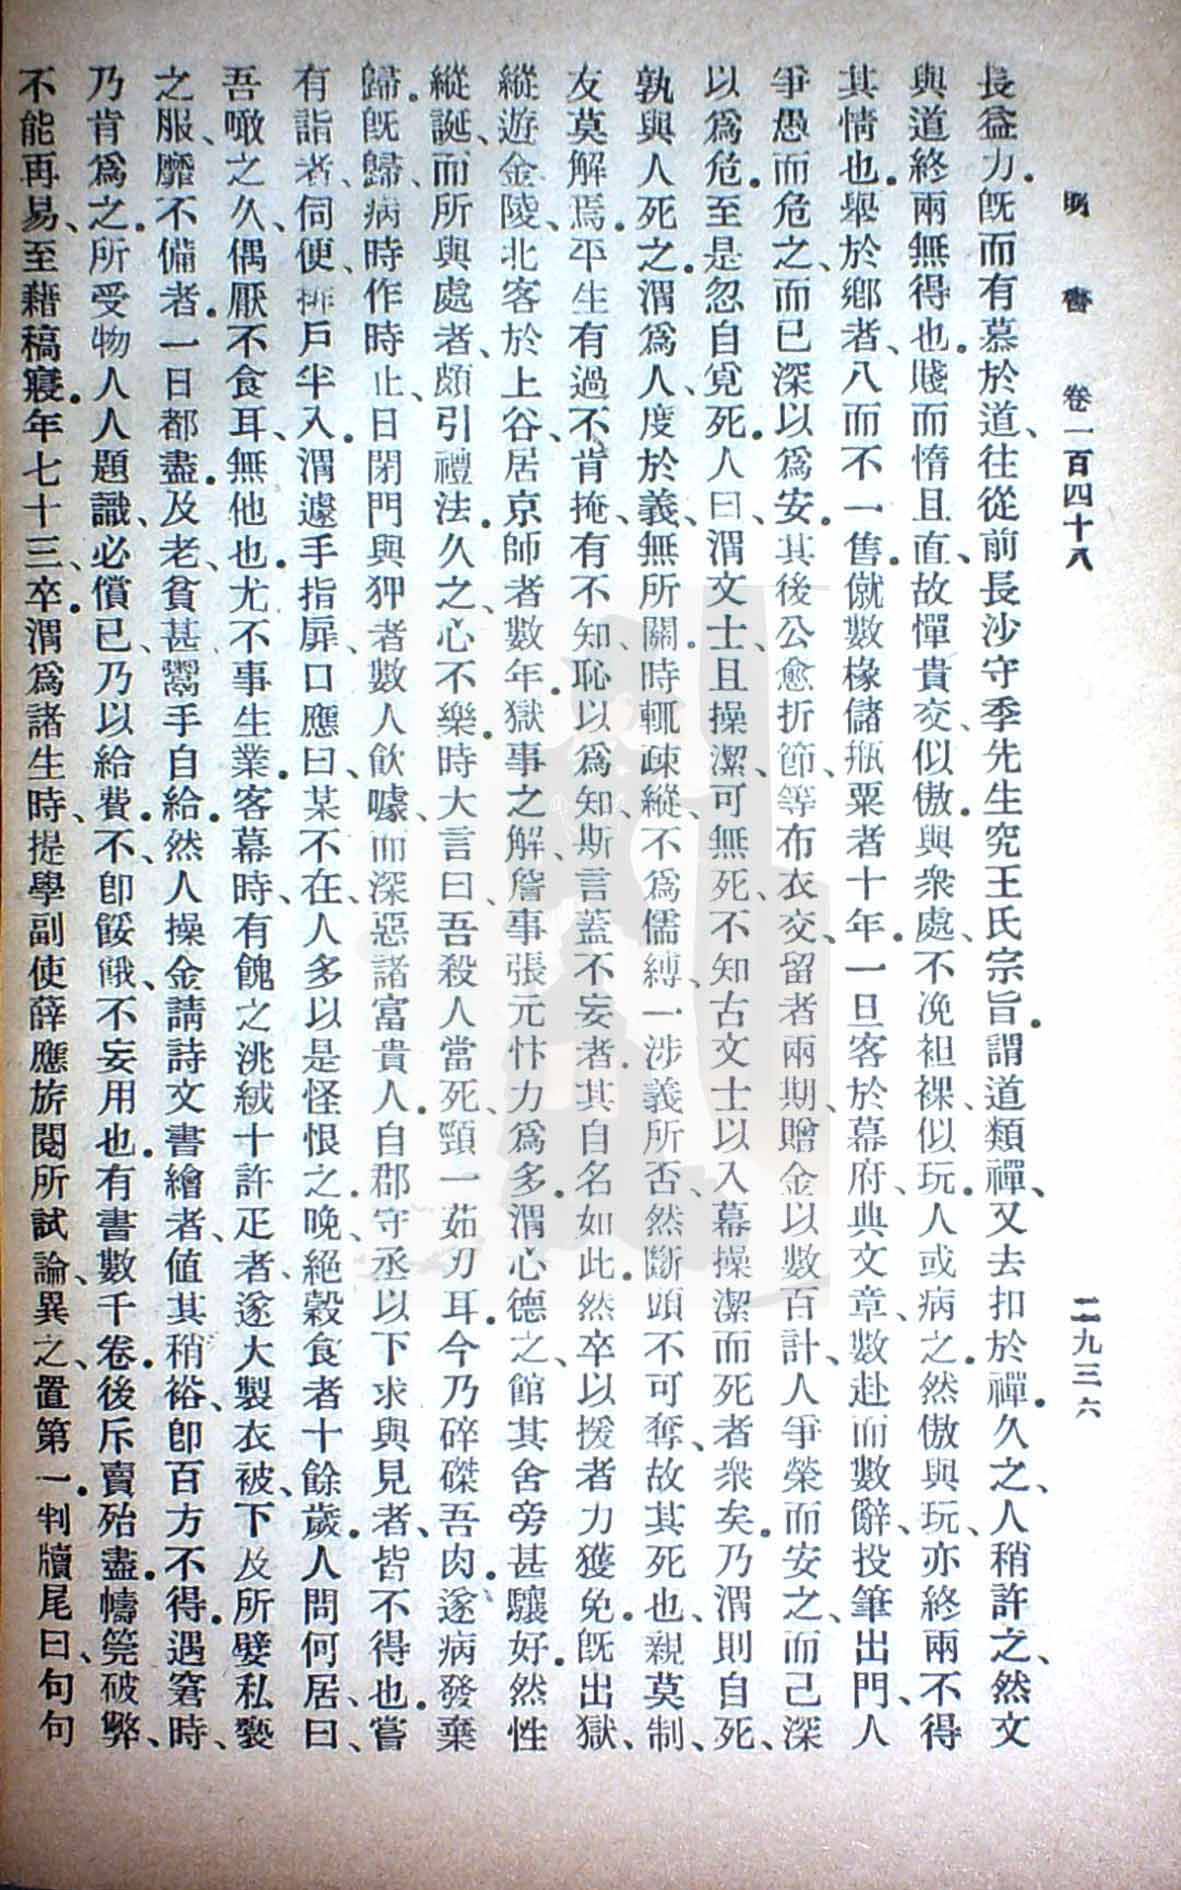 明書　卷一百四十八　二九三六
長益力。旣而有慕於道、往從前長沙守季先生究王氏宗旨。謂道類禪、又去扣於禪。久之、人稍許之、然文
與道終兩無得也。賤而惰且直、故憚貴交、似傲。與衆處、不浼袒裸、似玩。人或病之。然傲與玩、亦終兩不得
其情也。舉於鄉者、八而不一售。僦數椽儲瓶粟者十年。一旦客於幕府、典文章、數赴而數辭、投筆出門、人
爭愚而危之、而已深以爲安。其後公愈折節、等布衣交、留者兩期、贈金以數百計、人爭榮而安之、而己深
以爲危。至是忽自覓死。人曰、渭文士、且操潔、可無死、不知古文士以入幕操潔而死者衆矣。乃渭則自死、
孰與人死之。渭爲人、度於義、無所關。時輒疎縱、不爲儒縛、一涉義所否、然斷頭不可奪、故其死也、親莫制、
友莫解焉。平生有過、不肯掩、有不知、恥以爲知、斯言蓋不妄者。其自名如此。然卒以援者力獲免。旣出獄、
縱遊金陵、北客於上谷、居京師者數年。獄事之解、詹事張元忭力爲多。渭心德之、館其舍旁、甚驩好。然性
縱誕、而所與處者、頗引禮法。久之、心不樂。時大言曰、吾殺人當死、頸一茹刃耳。今乃碎磔吾肉。遂病發棄
歸。旣歸、病時作時止、日閉門與狎者數人飮噱、而深惡諸富貴人。自郡守丞以下求與見者、皆不得也。嘗
有詣者、伺便、排戶半入。渭遽手指扉、口應曰、某不在、人多以是怪恨之。晚、絕穀食者十餘歲。人問何居、曰、
吾噉之久、偶厭不食耳、無他也。尤不事生業。客幕時、有餽之洮絨十許疋者、遂大製衣被、下及所嬖私褻
之服、靡不備者。一日都盡。及老、貧甚、鬻手自給。然人操金請詩文書繪者、值其稍裕、卽百方不得。遇窘時、
乃肯爲之。所受物人人題識、必償已、乃以給費。不、卽餒餓、不妄用也。有書數千卷。後斥賣殆盡。幬筦破弊、
不能再易、至藉稿寢。年七十三、卒。渭爲諸生時、提學副使薛應旂閱所試論、異之、置第一。判牘尾曰、句句